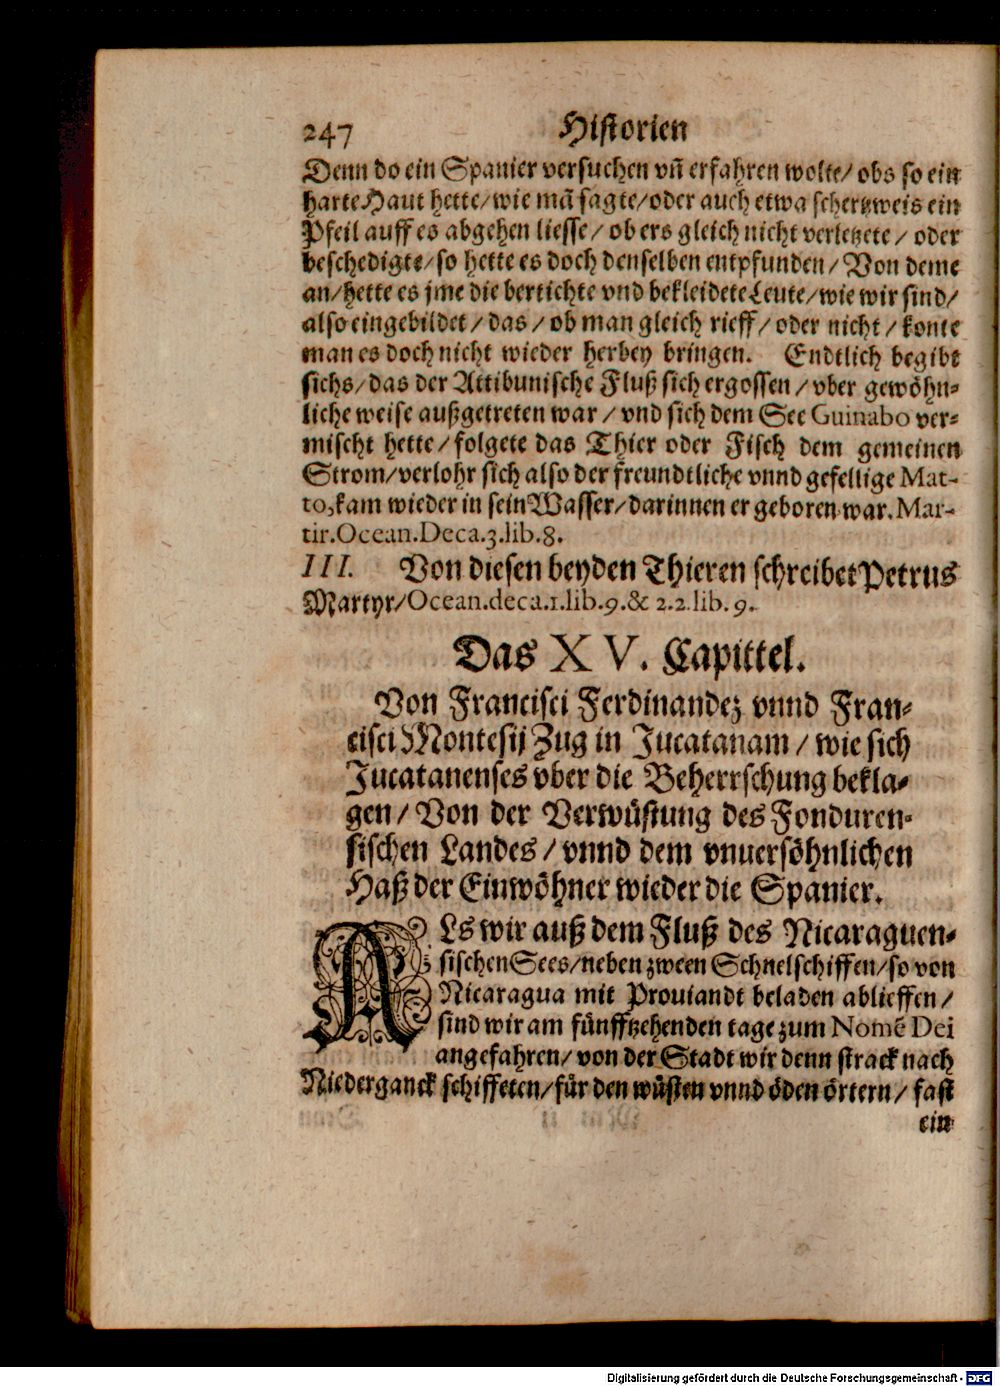 247 Historien
Denn do ein Spanier versuchen vñ erfahren wolte/ obs so ein
harte Haut hette/ wie mã sagte/ oder auch etwa schertzweis ein
Pfeil auff es abgehen liesse/ ob ers gleich nicht verletzete/ oder
beschedigte/ so hette es doch denselben entpfunden/ Von deme
an/ hette es jme die bertichte vnd bekleidete Leute/ wie wir sind/
also eingebildet/ das/ ob man gleich rieff/ oder nicht/ konte
man es doch nicht wieder herbey bringen. Endtlich begibt
sichs/ das der Attibunische Fluß sich ergossen/ vber gewöhn-
liche weise außgetreten war/ vnd sich dem See Guinabo ver-
mischt hette/ folgete das Thier oder Fisch dem gemeinen
Strom/ verlohr sich also der freundtliche vnnd gefellige Mat-
to, kam wieder in sein Wasser/ darinnen er geboren war. Mar-
tir. Ocean. Deca. 3. lib. 8.
III. Von diesen beyden Thieren schreibet Petrus
Martyr/ Ocean. deca. 1. lib. 9. & 2. 2. lib. 9.
Das XV. Capittel.
Von Francisci Ferdinandez vnnd Fran-
cisci Montesij Zug in Jucatanam/ wie sich
Jucatanenses vber die Beherrschung bekla-
gen/ Von der Verwüstung des Fonduren-
sischen Landes/ vnnd dem vnuersöhnlichen
Haß der Einwöhner wieder die Spanier.
ALs wir auß dem Fluß des Nicaraguen-
sischen Sees/ neben zween Schnelschiffen/ so von
Nicaragua mit Prouiandt beladen ablieffen/
sind wir am fünfftzehenden tage zum Nomẽ Dei
angefahren/ von der Stadt wir denn strack nach
Niederganck schiffeten/ für den wüsten vnnd öden örtern/ fast
ein
Digitalisierung gefördert durch die Deutsche Forschungsgemeinschaft - DFG